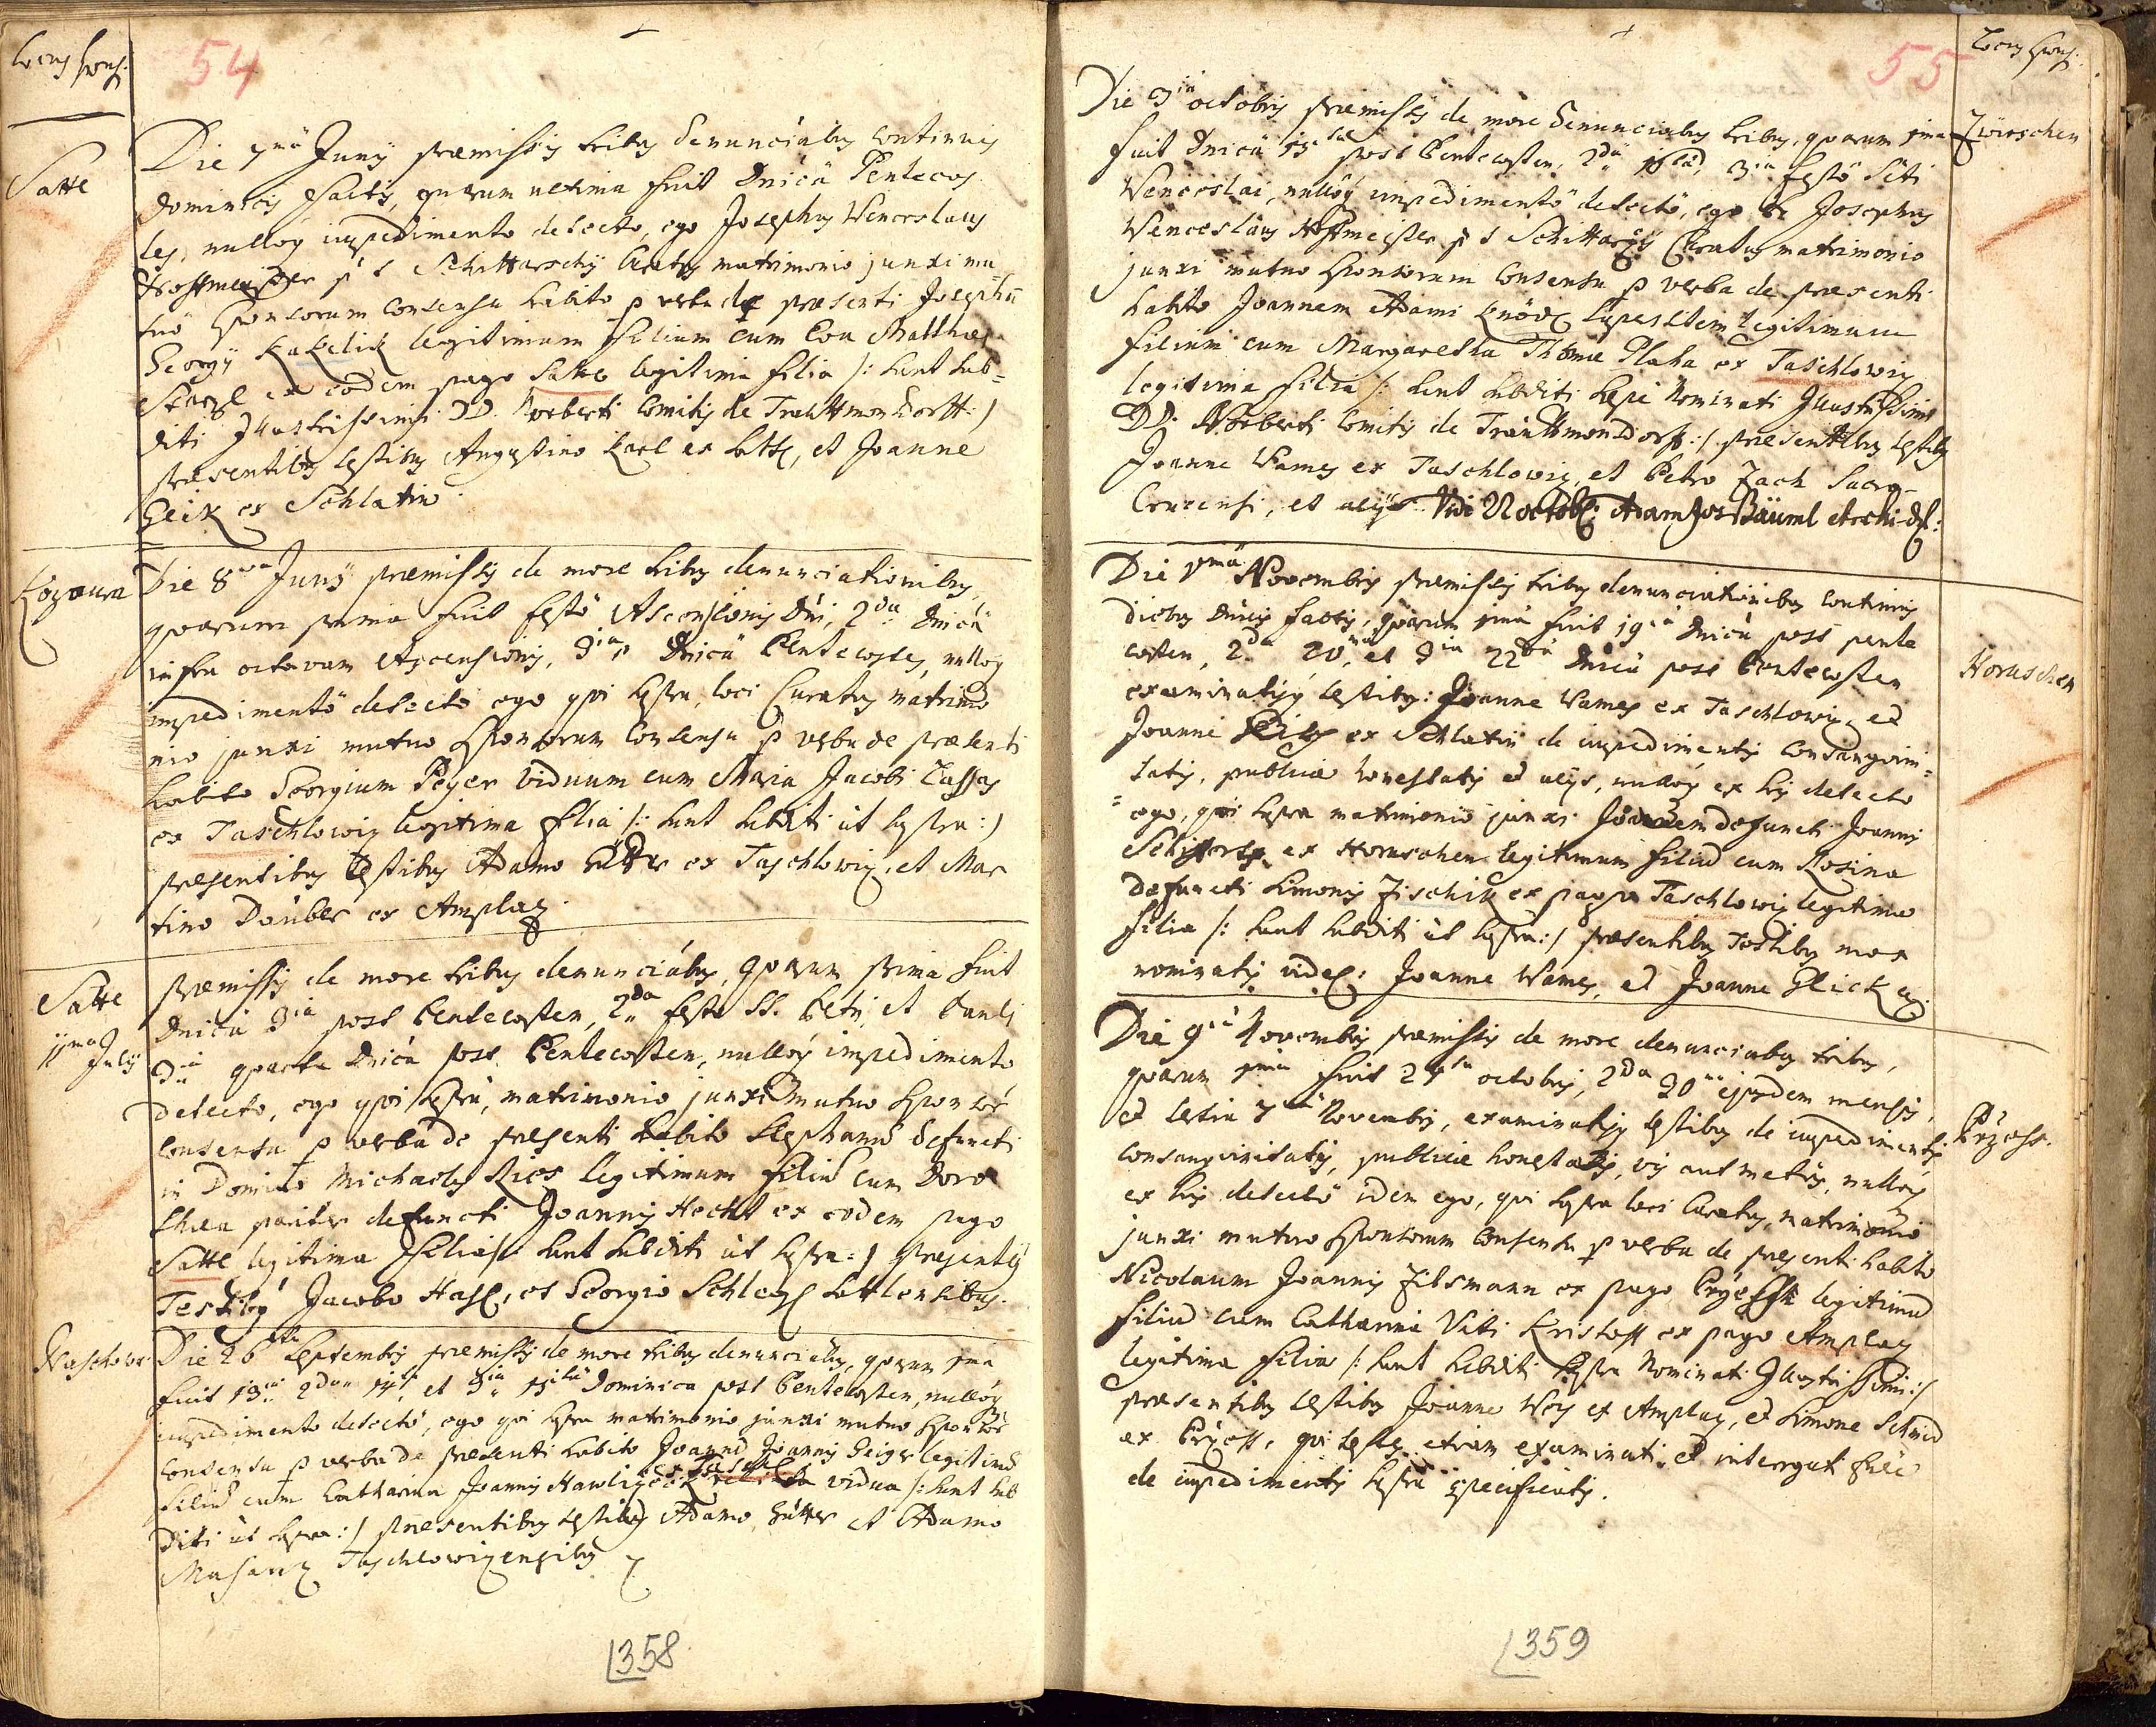 Locus spons:
54
Satte
Die 7mâ Junÿ præmissis tribus denunciatibus continuis
Dominicis factis, quarum ultima fuit Dnicâ Pentecos
tes, nulloq impedimento detecto, ego Josephus Wenceslaus
Hoffmeister p t Schittarschÿ Curatus matrimonio junxi mu=
tuô sponsorum consensu habito p verba de præsenti Josephũ
Georgÿ Kakelik legitimum filium cum Eva Matthæi
ex eodem pago Satte legitima filia /: sunt sub=
diti Illustrissimi DD. Norberti Comitis de Trauttmonsdorff :/
præsentibus testibus Augustino Karl ex Satte, et Joanne
Glik ex Schlatin.
Kozaura
Die 8va Junÿ præmissis de more tribus denunciationibus,
quarum prima fuit festô Ascensionis Dni, 2da Dnicâ
infra octavam Ascensionis, 3ia Dnicâ Pentecostes, nulloq
impedimentô detecto ego qui supra, loci Curatus matrimo
nio junxi mutuo sponsorum consensu p verba de præsenti
habito Georgium Peÿer viduum cum Maria Jacobi Tassas
ex Taschlowiz legitima filia /: sunt subditi ut supra :/
præsentibus testibus Adamo Hütter ex Taschlowiz, et Mar
tino Dauber ex Amplaz.
Satte
11ma Julÿ
præmissis de more tribus denunciatbus, quarum prima fuit
Dnicâ 3iâ post Pentecosten, 2da festo SS. Petri et Pauli
3ia quarta Dnicâ post Pentecosten, nulloq impedimento
detecto, ego qui supra, matrimonio junxi mutuo sponsorũ
consensu p verba de præsenti habito Stephanũ defuncti
in Domino Michaelis Ries legitimum filiũ cum Doro
thea pariter defuncti Joannis Hecht ex eodem pago
Satte legitima filia /: sunt subditi ut supra :/ præsentibus
Testibus Jacobo Hass, et Georgio Schlegl Sattensibus.
Naschowi
Die 26ta Septembris præmissis de more tribus denunciatbus, quarum 1ma
fuit 13ia 2da 14ta et 3ia 15ta Dominica post Pentecosten, nulloq
impedimento detectô, ego qui supra matrimonio junxi mutuo sponsorũ
consensu p verba de præsenti habito Joannẽ Joannis Geiger legitimũ
filiũ cum Catharina Joannis Hawliczek vidua /: sunt sub
diti ut supra :/ præsentibus testibus Adamo Hütter et Adamo
Masanz Taschlowizensibus
358
Locus spons:
55
Zwirschen
Die 3iâ octobris præmissis de more denunciatbus tribus, quarum 1ma
fuit Dnicâ 15ta post Pentecosten, 2da 16ta, 3ia festô Scti
Wenceslai, nulloq impedimentô detectô, ego Josephus
Wenceslaus Hoffmeister p t Schittarzÿ Curatus matrimonio
junxi mutuo sponsorum consensu p verba de præsenti
habito Joannem Adami Knödl superstitem legitimum
filium cum Margaretha Thomæ Plaha ex Taschlowiz
legitima filia /: sunt subditi sæpe Nominati Illustrissimi
DD. Norberti Comitis de Trauttmonsdorff :/ præsentibus testibus
Joanne Wames ex Taschlowiz, et Petro Zach Sacro-
Crucensi, et alÿs. Vidi 22 octob: Adam Jos Bäuml Archi-D:
Horuschen
Die 7mâ Novembris præmissis tribus denunciationibus continuis
diebus Dnicis factis, quarum 1ma fuit 19na Dnicâ post pente
costen, 2da 20ma, et 3ia 22da Dnicâ post Pentecosten
examinatisq testibus: Joanne Wames ex Taschlowiz et
Joanne Glik ex Schlatin de impedimentis consangvini=
tatis, publicæ honestatis et alÿs, nulloq ex his detecto
ego, qui supra matrimonio junxi Joannem defuncti Joannis
ex Horuschen legitimum filiũ cum Rosina
defuncti Simonis Zischik ex pago Taschlowiz legitima
filia /: sunt subditi ut supra :/ præsentibus Testibus mox
nominatis videl: Joanne Wames, et Joanne Glick
Pržess.
Die 9nâ Novembris præmissis de more denunciatbus tribus,
quarum 1ma fuit octobris, 2da 30ma ejusdem mensis,
et tertia Novembris, examinatisq testibus de impedimentis
consangvinitatis, publicæ honestatis, vis aut metûs, nulloq
ex his detectô idem ego, qui supra loci Curatus, matrimonio
junxi mutuo sponsorum consensu p verba de præsenti habito
Nicolaum Joannis Zitsmann ex pago legitimũ
filiũ cum Catharina Viti Kristoff ex pago Amplaz
legitima filia /: sunt subditi supra Nominati Illustrissimi :/
præsentibus testibus Joanne Weis ex Amplaz, et Simone Schmid
ex Pržess, qui testes etiam examinati, et interrogati fuẽr
de impedimentis supra specificatis.
359